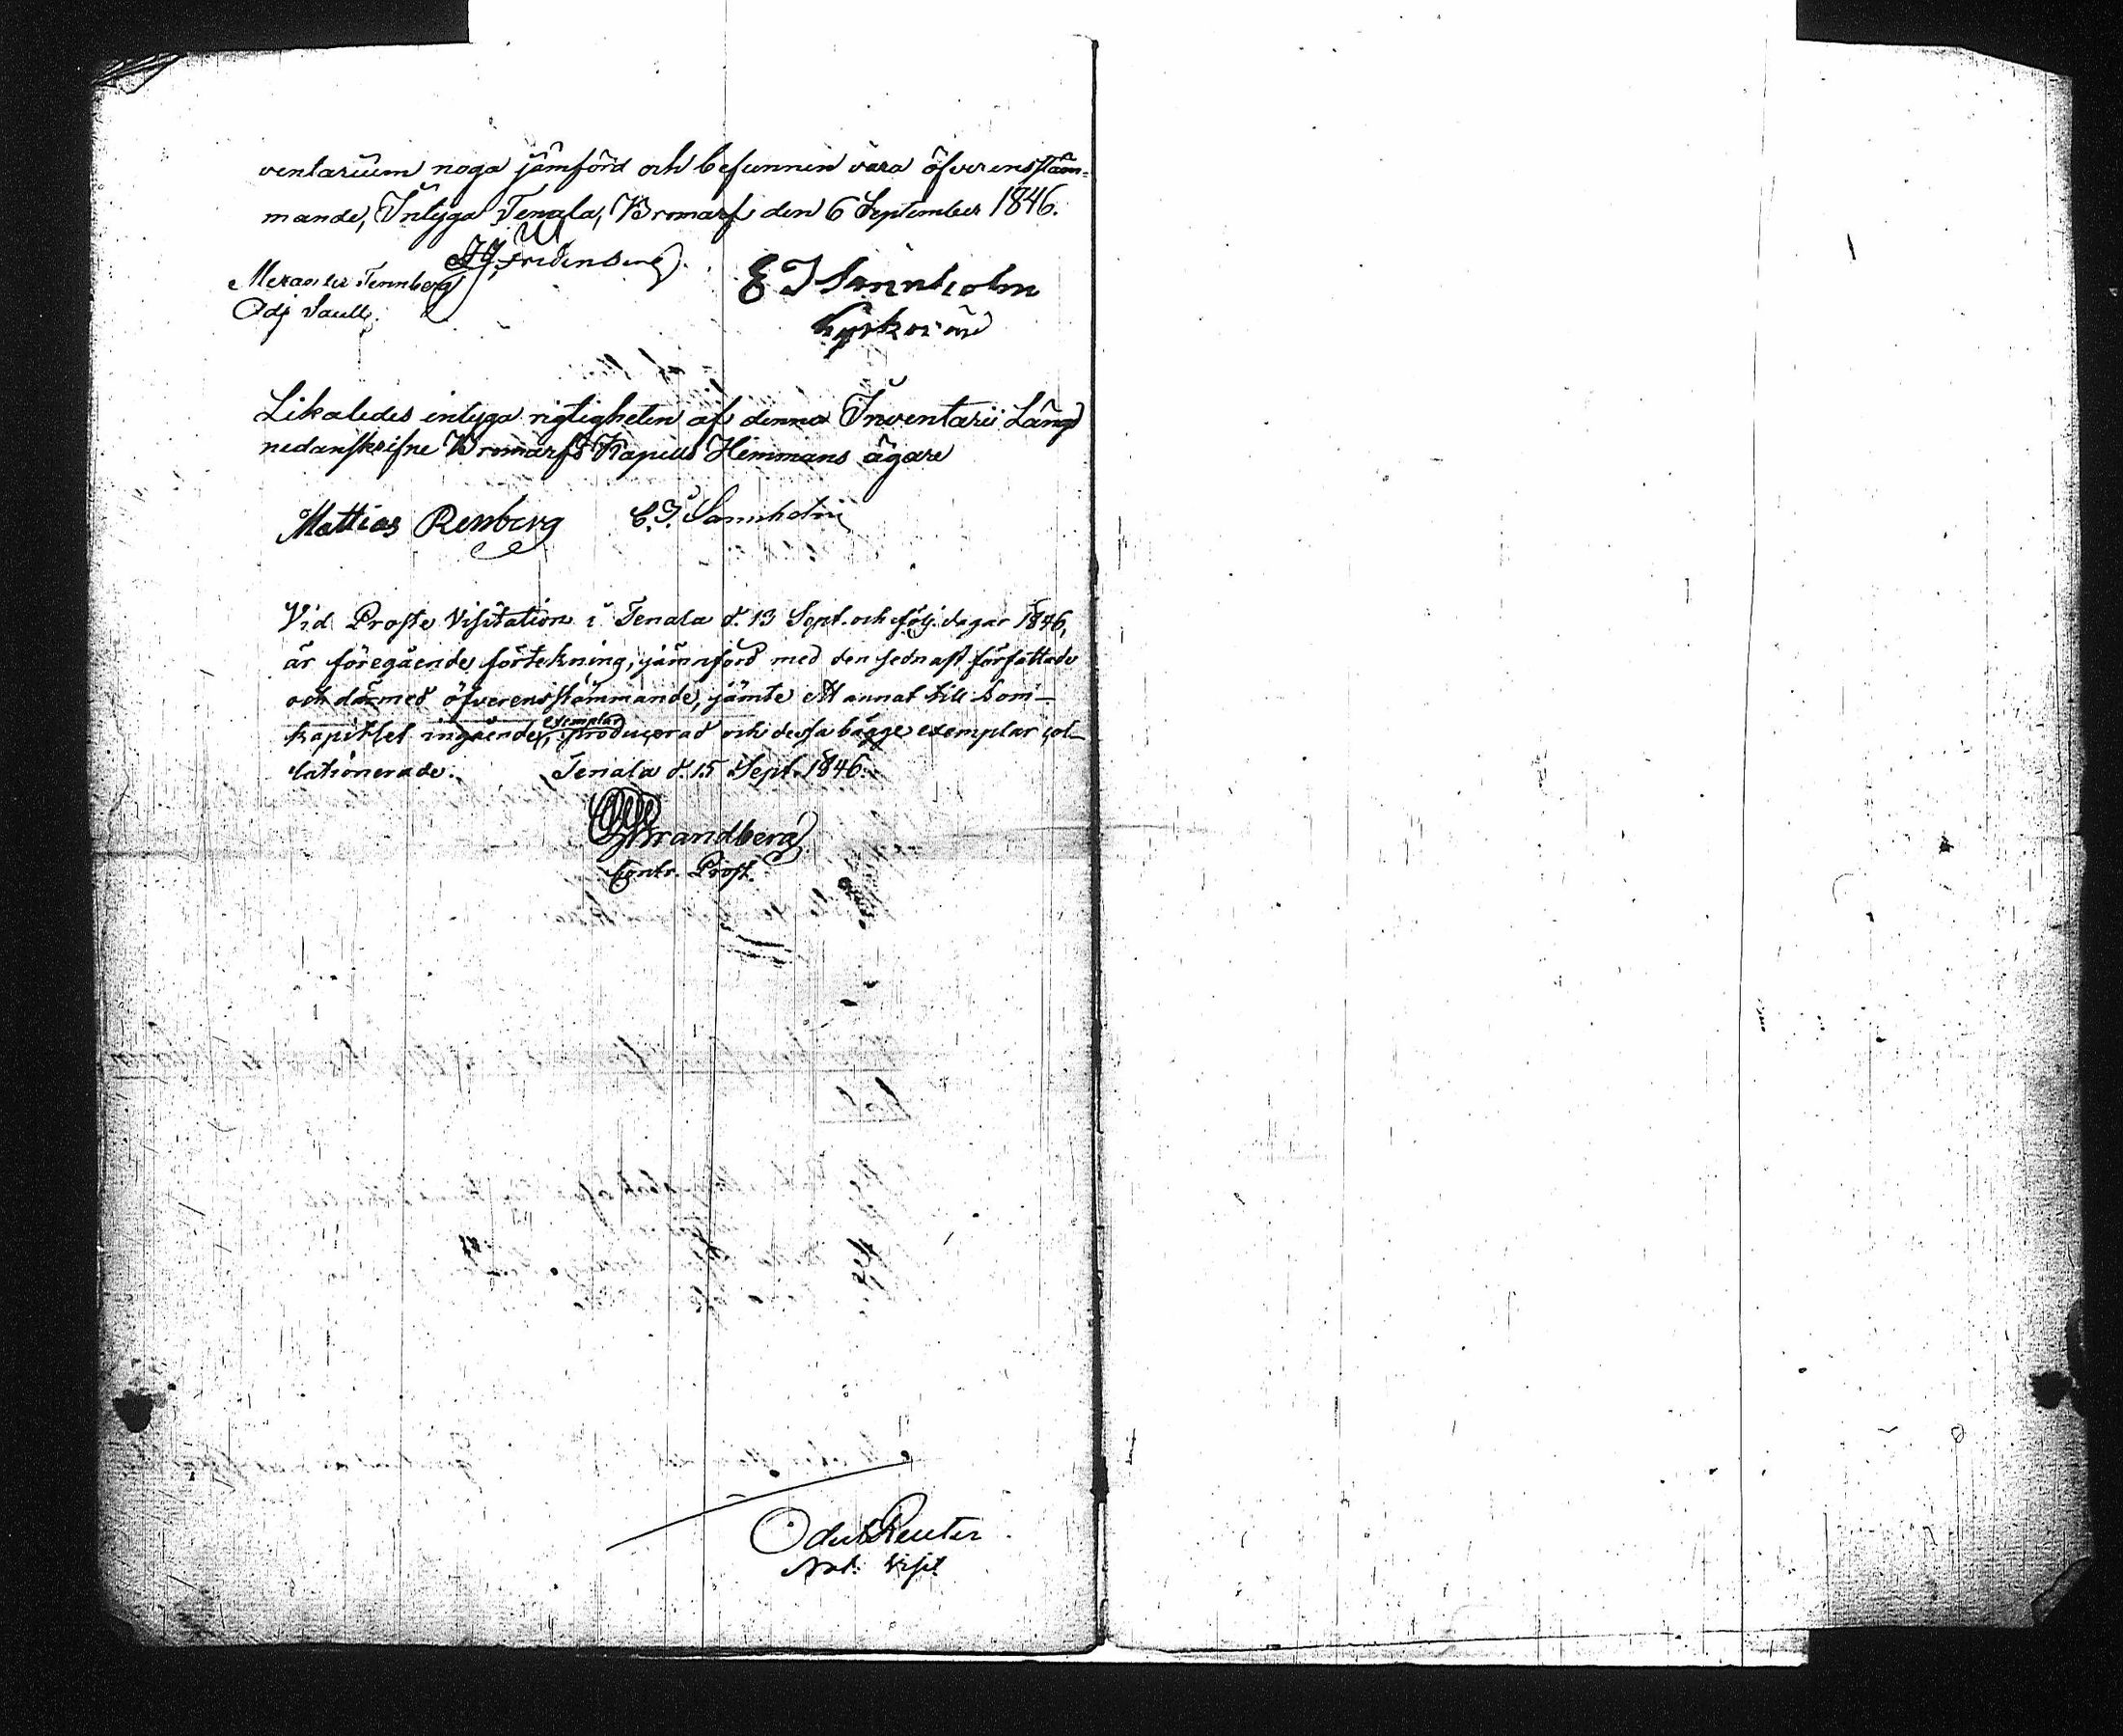 ventarium noga jämförd och befunnen vara öfverensstäm-
mande, Intyga Tenala, Bromarf den 6 September 1846.
Alexander Tennberg
E J Sannholm
Adj
Kyrkovärd
Likaledes intyga rigtigheten af denna Inventarii Längd
nedanskrifne Bromarfs Kapells Hemmans ägare
Mattias Renberg C. J. Sannholm
Vid Proste Visitation i Tenala d. 13 Sept. och följ. dagar 1846,
är föregående förtekning, jämnförd med den sednast författade
och därmed öfverensstämmande, jämte ett annat till Dom-
kapitlet ingående, exemplar producerad och dessa bägge exemplar col-
lationerade. Tenala d. 15 Sept. 1846.
Strandberg
Contr. Prost.
Reuter
Not. Visit